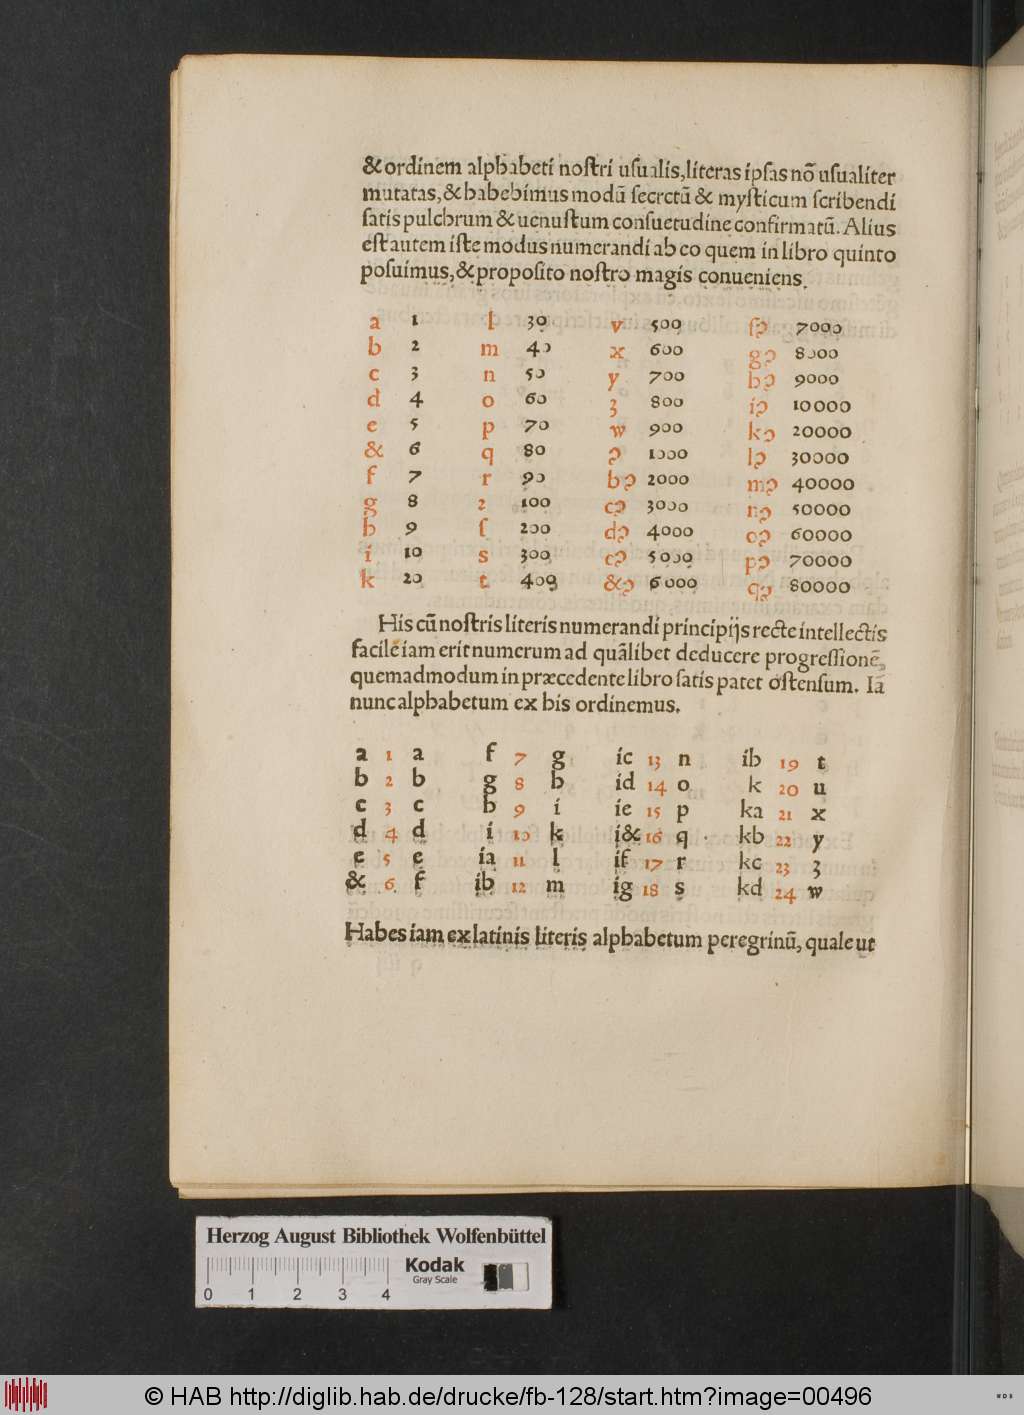 & ordinem alphabeti noſtri uſualis, literas ipſas nõ uſualiter
mutatas, & habebimus modũ ſecretũ & myſticum ſcribendi
ſatis pulchrum & uenuſtum conſuetudine confirmatũ. Alius
eſt autem iſte modus numerandi ab eo quem in libro quinto
poſuimus, & propoſito noſtro magis conueniens.
a 1 l 30 v 500 fↄ 7000
b 2 m 40 x 600 gↄ 8000
c 3 n 50 y 700 hↄ 9000
d 4 o 60 z 800 iↄ 10000
e 5 p 70 w 900 kↄ 20000
& 6 q 80 ↄ 1000 lↄ 30000
f 7 r 90 bↄ 2000 mↄ 40000
g 8 2 100 cↄ 3000 nↄ 50000
h 9 ſ 200 dↄ 4000 oↄ 60000
i 10 s 300 eↄ 5000 pↄ 70000
k 20 t 400 &ↄ 6000 qↄ 80000
His cũ noſtris literis numerandi principijs recte intellectis
facile iam erit numerum ad quãlibet deducere progreſſionẽ,
quemadmodum in præcedente libro ſatis patet oſtenſum. Iã
nunc alphabetum ex his ordinemus.
a 1 a f 7 g ic 13 n ih 19 t
b 2 b g 8 h id 14 o k 20 u
c 3 c h 9 i ie 15 p ka 21 x
d 4 d i 10 k i& 16 q kb 22 y
e 5 e ia 11 l if 17 r kc 23 z
& 6 f ib 12 m ig 18 s kd 24 w
Habes iam ex latinis literis alphabetum peregrinũ, quale ut
Herzog August Bibliothek Wolfenbüttel
Kodak
Gray Scale
0 1 2 3 4
© HAB http://diglib.hab.de/drucke/fb-128/start.htm?image=00496